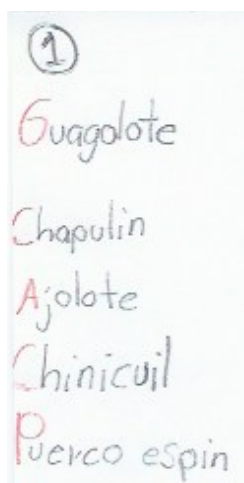 1
Guagolote
Chapulin
Ajolote
Chinicuil
Puerco espin